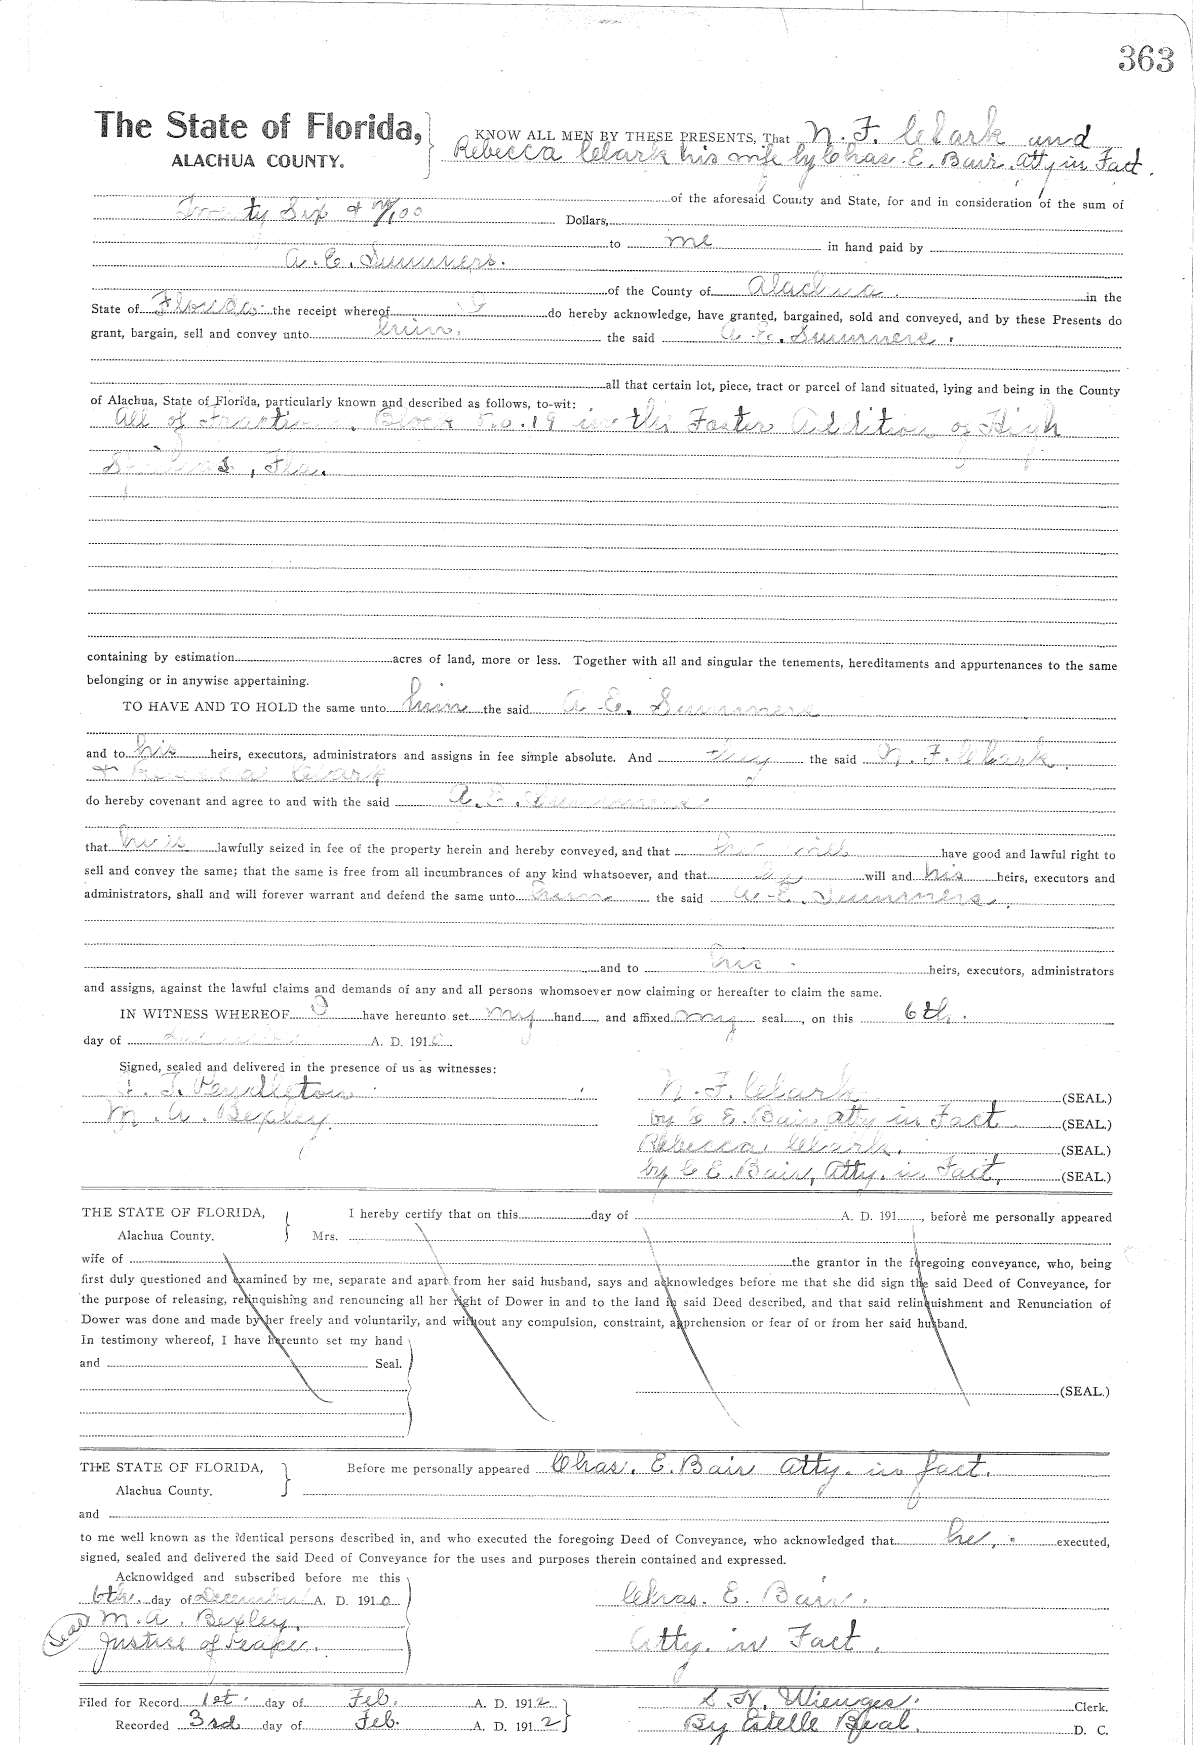 363
The State of Florida,
ALACHUA COUNTY.
KNOW ALL MEN BY THESE PRESENTS, That N. F. Clark and
Rebecca Clark his wife by Chas. E. Bair Atty in Fact.
of the aforesaid County and State, for and in consideration of the sum of
Twenty Six & /100 Dollars,
to me in hand paid by
A. E. Summers.
of the County of Alachua. in the
State of Florida. the receipt whereof I do hereby acknowledge, have granted, bargained, sold and conveyed, and by these Presents do
grant, bargain, sell and convey unto him, the said A. E. Summers.
all that certain lot, piece, tract or parcel of land situated, lying and being in the County
of Alachua, State of Florida, particularly known and described as follows, to-wit:
All of Block No. 19 in the Foster Addition of High
Springs, Fla.
containing by estimation acres of land, more or less. Together with all and singular the tenements, hereditaments and appurtenances to the same
belonging or in anywise appertaining.
TO HAVE AND TO HOLD the same unto him the said A. E. Summers
and to his heirs, executors, administrators and assigns in fee simple absolute. And they the said N. F. Clark
& Rebecca Clark
do hereby covenant and agree to and with the said A. E. Summers
that lawfully seized in fee of the property herein and hereby conveyed, and that have good and lawful right to
sell and convey the same; that the same is free from all incumbrances of any kind whatsoever, and that will and his heirs, executors and
administrators, shall and will forever warrant and defend the same unto him the said A. E. Summers.
and to his heirs, executors, administrators
and assigns, against the lawful claims and demands of any and all persons whomsoever now claiming or hereafter to claim the same.
IN WITNESS WHEREOF I have hereunto set my hand and affixed my seal, on this 6th.
day of A. D. 1910
Signed, sealed and delivered in the presence of us as witnesses:
T. Pendleton N. F. Clark (SEAL.)
M. A. Bexley. by C E. Bair Atty in Fact (SEAL.)
Rebecca Clark. (SEAL.)
by C E. Bair, Atty. in Fact, (SEAL.)
THE STATE OF FLORIDA, I hereby certify that on this day of A. D. 191, before me personally appeared
Alachua County. Mrs.
wife of the grantor in the foregoing conveyance, who, being
first duly questioned and examined by me, separate and apart from her said husband, says and acknowledges before me that she did sign the said Deed of Conveyance, for
the purpose of releasing, relinquishing and renouncing all her right of Dower in and to the land in said Deed described, and that said relinquishment and Renunciation of
Dower was done and made by her freely and voluntarily, and without any compulsion, constraint, apprehension or fear of or from her said husband.
In testimony whereof, I have hereunto set my hand
and Seal.
(SEAL.)
THE STATE OF FLORIDA, Before me personally appeared Chas. E. Bair Atty. in fact.
Alachua County.
and
to me well known as the identical persons described in, and who executed the foregoing Deed of Conveyance, who acknowledged that he, executed,
signed, sealed and delivered the said Deed of Conveyance for the uses and purposes therein contained and expressed.
Acknowldged and subscribed before me this
6th. day of December A. D. 1910 Chas. E. Bair.
Seal M. A. Bexley. Atty. in Fact.
Justice of Peace.
Filed for Record 1st. day of Feb. A. D. 1912 S. H. Wienges. Clerk.
Recorded 3rd day of Feb. A. D. 1912 By Estelle Beal. D. C.